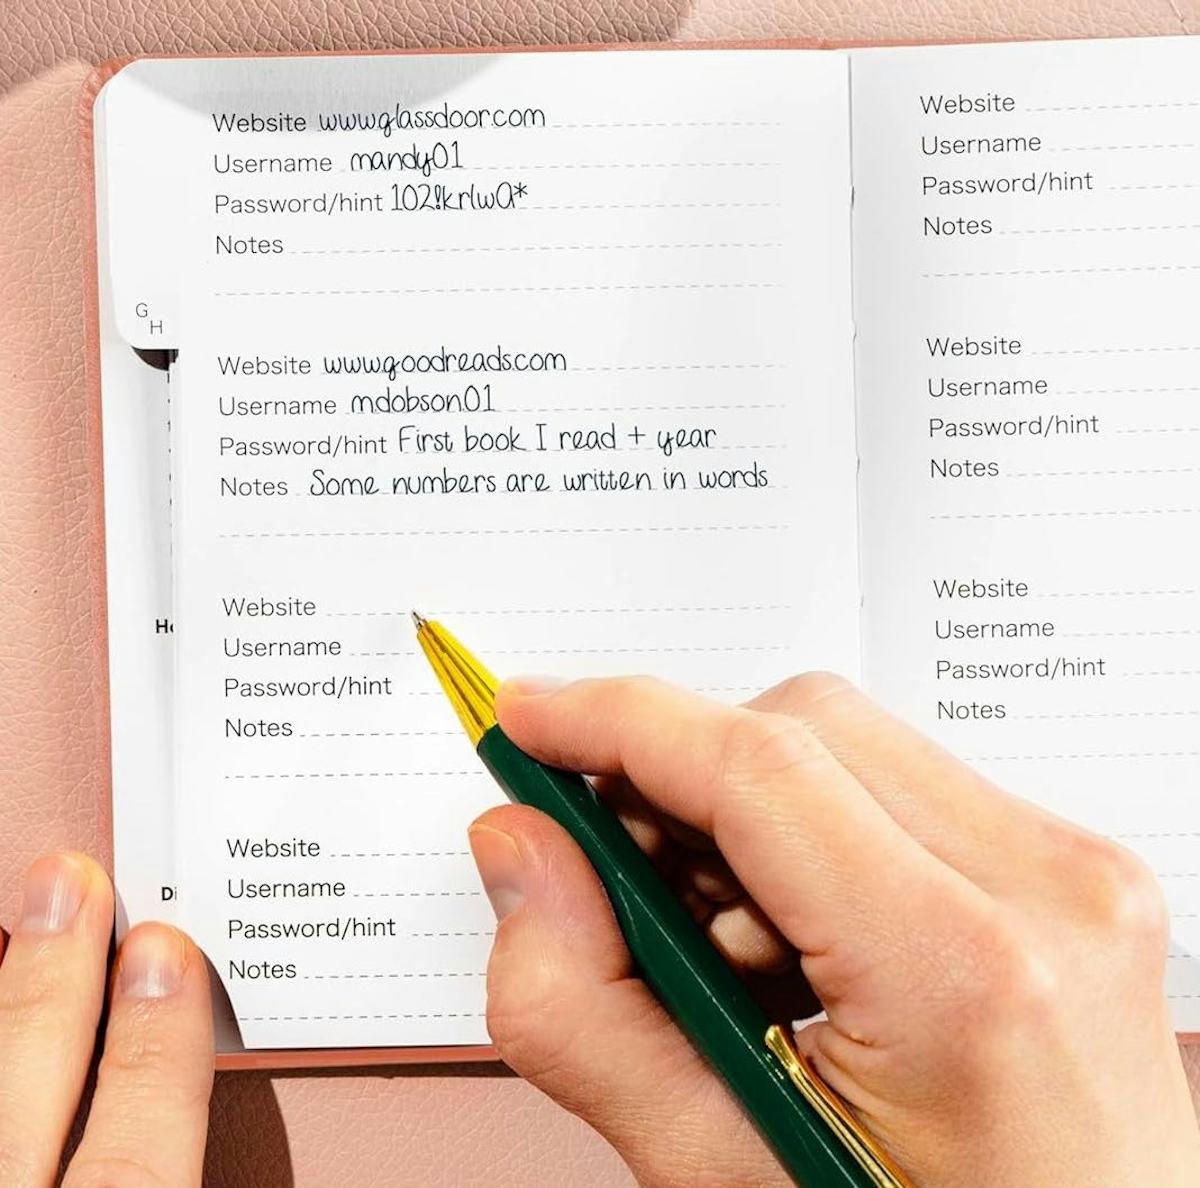 Website www.glassdoor.com
Username mandy01
Password/hint 102!krlwa*
Notes
G
H
Website www.goodreads.com
Username mdobson01
Password/hint First book I read + year
Notes Some numbers are written in words
Website
Username
Password/hint
Notes
Website
Username
Password/hint
Notes
Website
Username
Password/hint
Notes
Website
Username
Password/hint
Notes
Website
Username
Password/hint
Notes